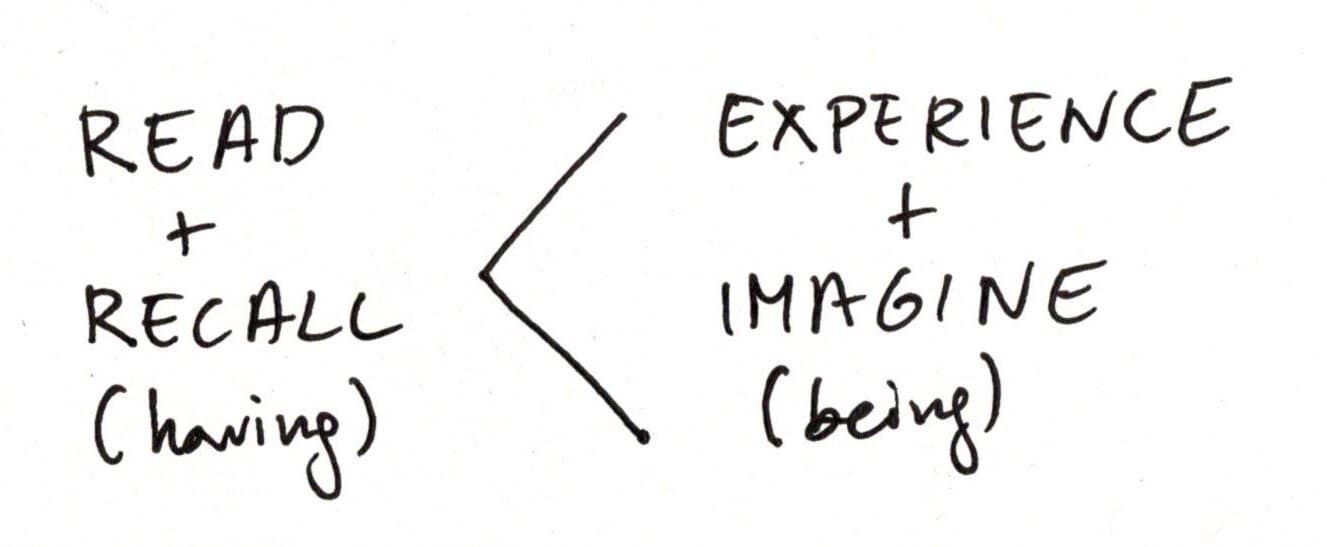 READ
+
RECALL
(having)
<
EXPERIENCE
+
IMAGINE
(being)